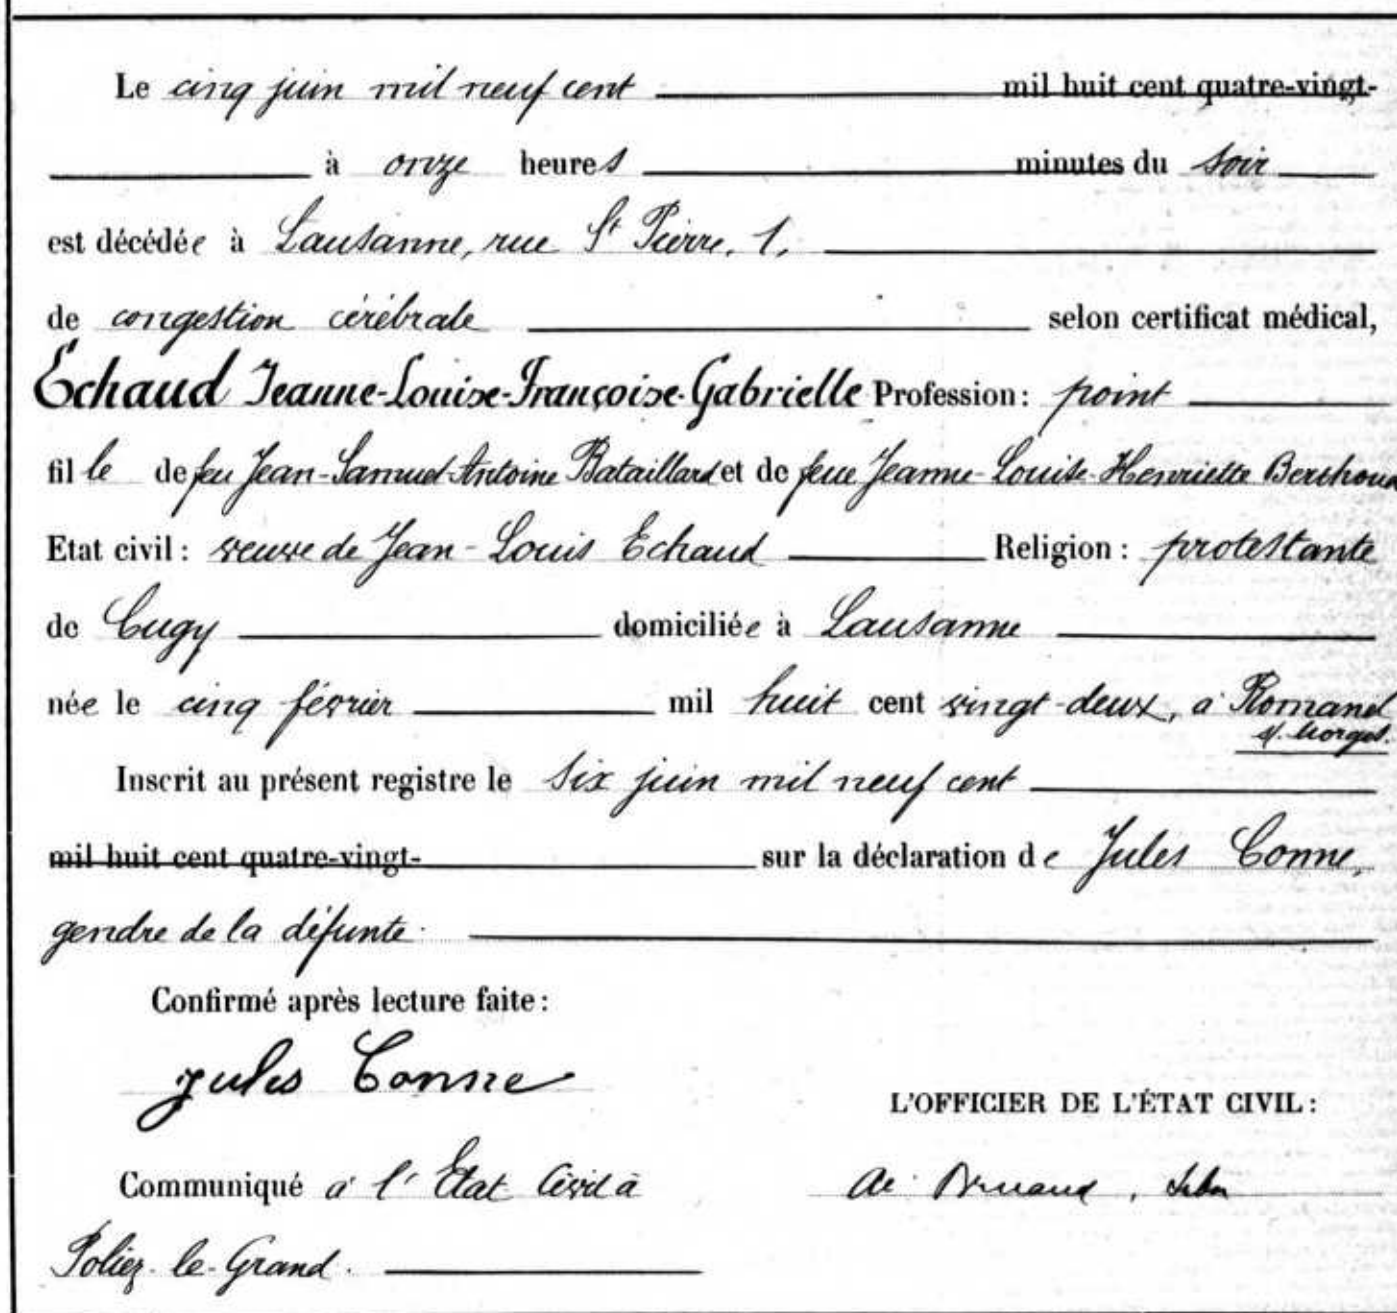 Le cinq juin mil neuf cent mil huit cent quatre-vingt-
à onze heures minutes du soir
est décédée à Lausanne, rue St Pierre, 1,
de congestion cérébrale selon certificat médical,
Echaud Jeanne-Louise-Françoise-Gabrielle Profession: point
fille de feu Jean-Samuel-Antoine Bataillard et de feue Jeanne-Louise-Henriette Berthoud
Etat civil: veuve de Jean-Louis Echaud Religion: protestante
de Cugy domiciliée à Lausanne
née le cinq février mil huit cent vingt-deux, à Romanel
s/ Morges.
Inscrit au présent registre le six juin mil neuf cent
mil huit cent quatre-vingt- sur la déclaration de Jules Conne,
gendre de la défunte.
Confirmé après lecture faite:
Jules Conne
L'OFFICIER DE L'ÉTAT CIVIL:
Communiqué à l'Etat Civil à
Poliez-le-Grand.